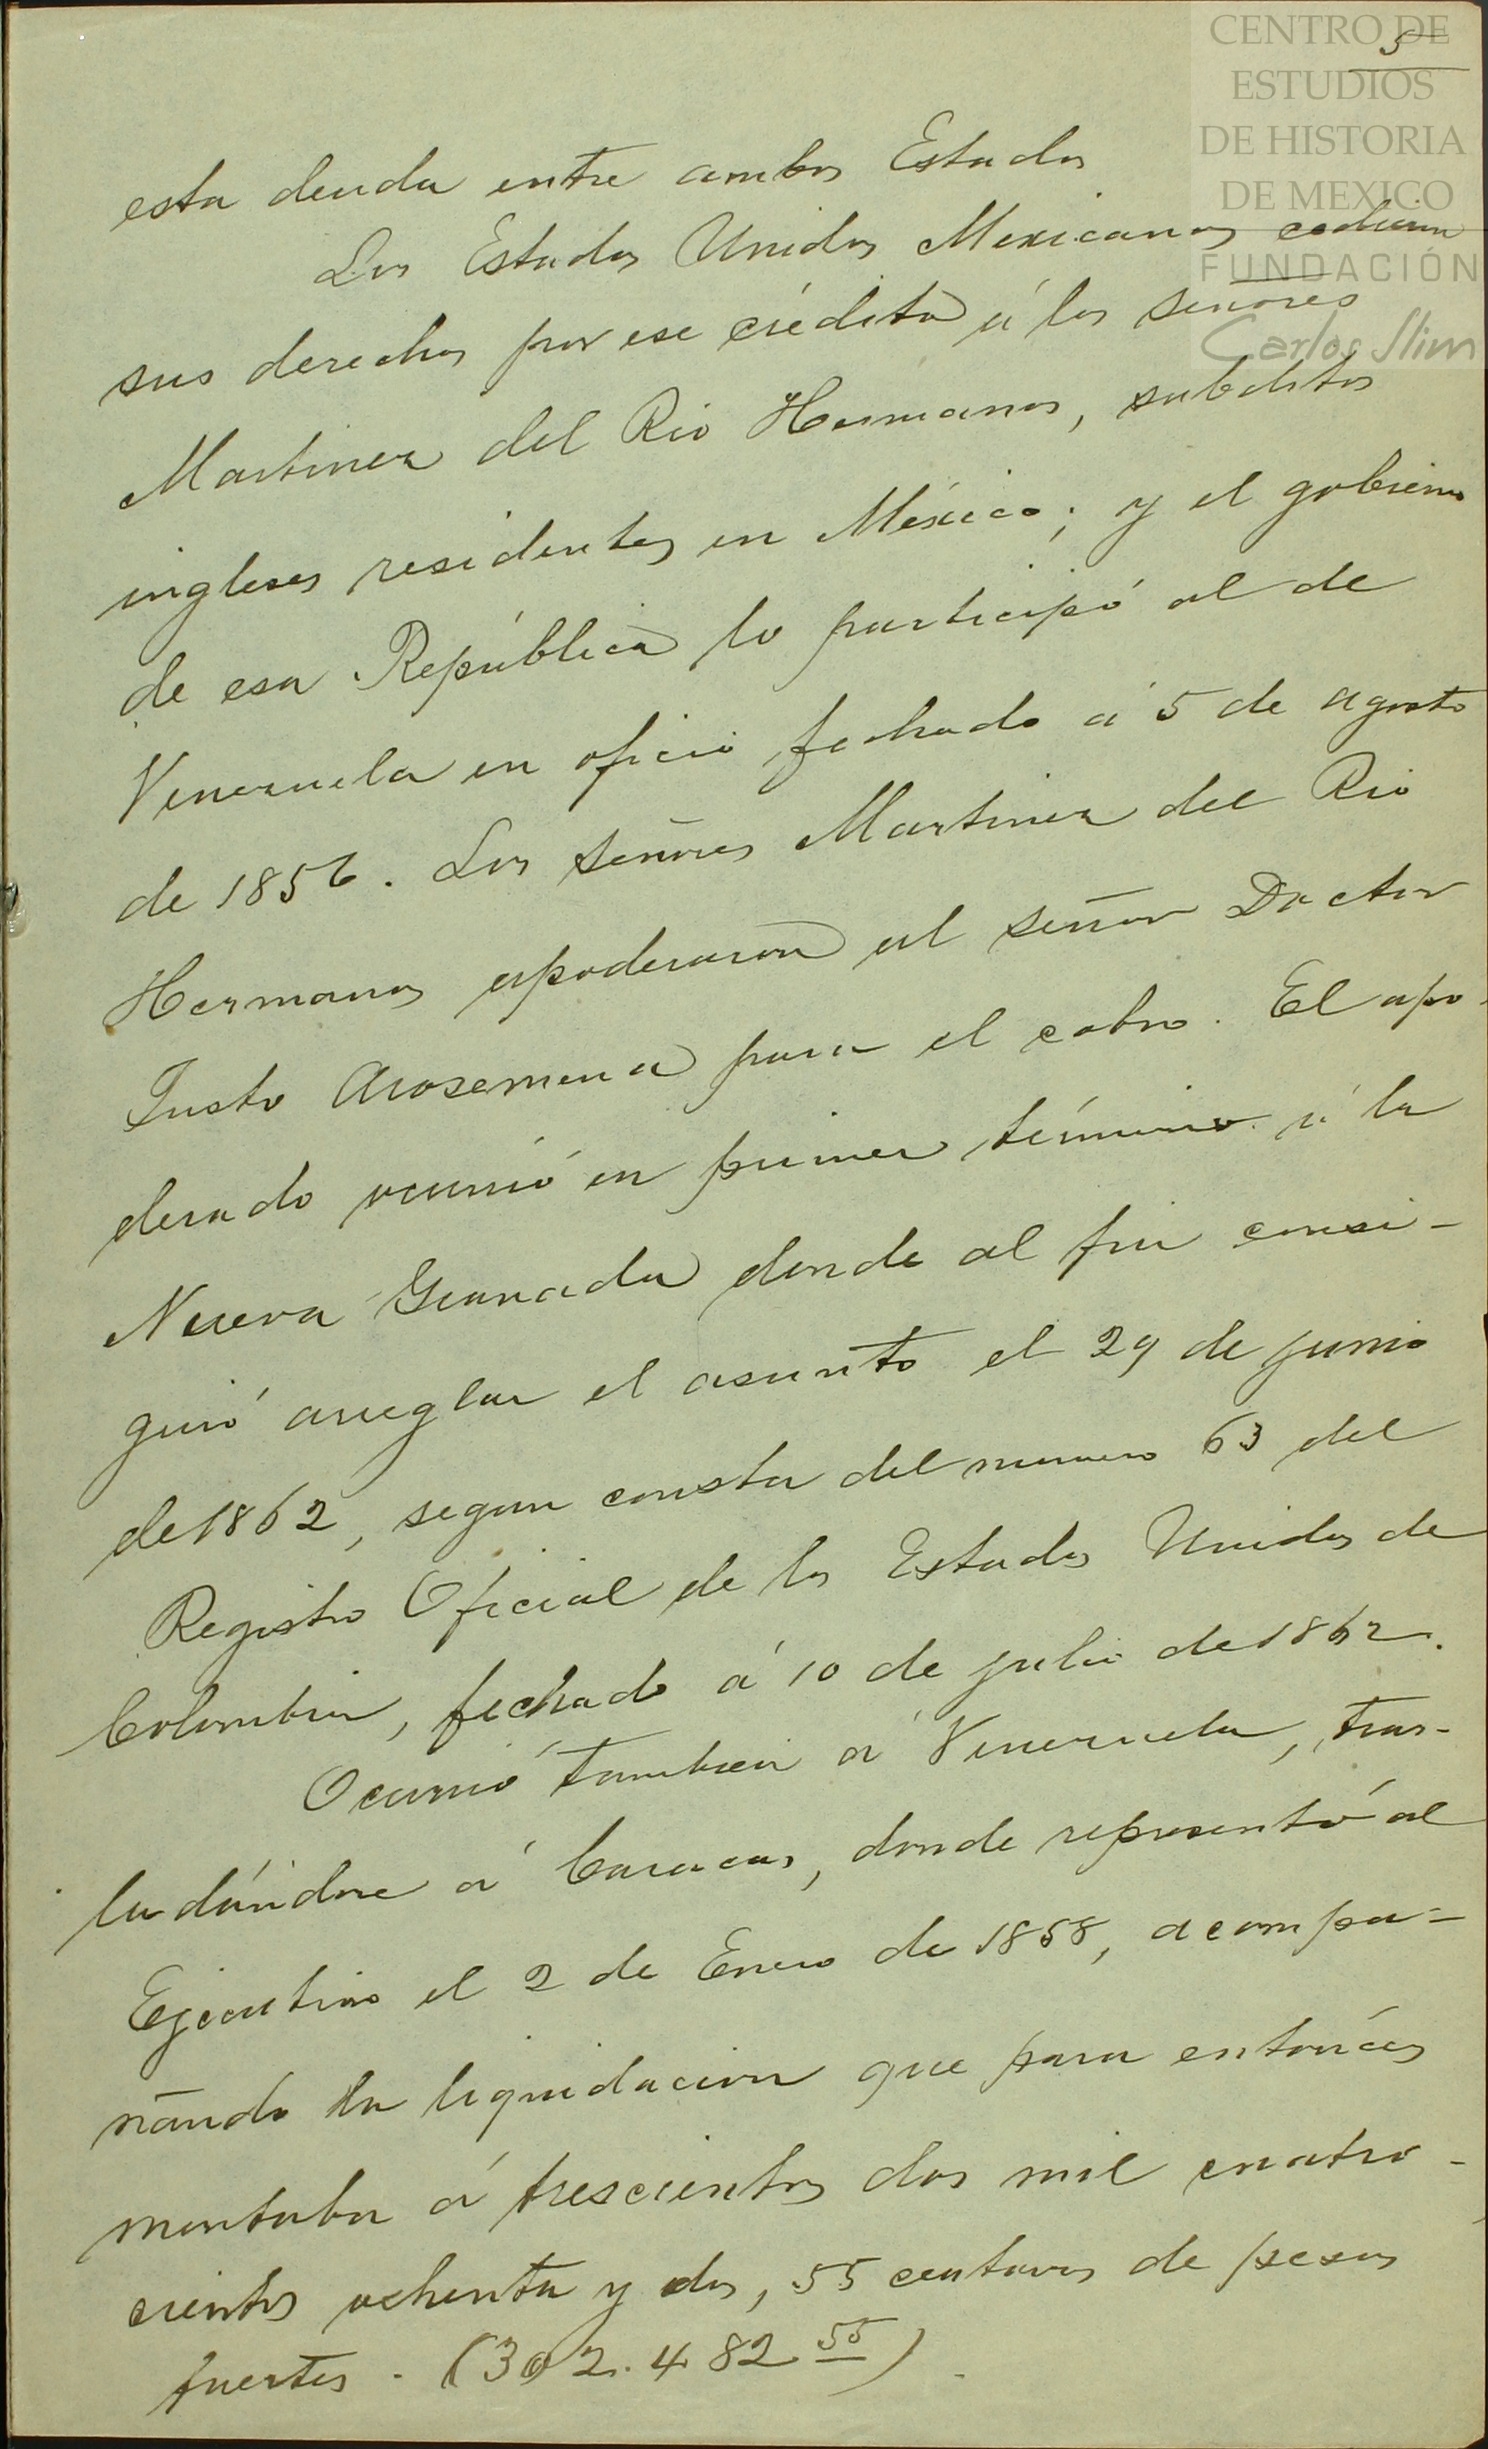 CENTRO DE
ESTUDIOS
DE HISTORIA
DE MEXICO
FUNDACIÓN
Carlos Slim
5
esta deuda entre ambos Estados
Los Estados Unidos Mexicanos cedieron
sus derechos por ese crédito á los señores
Martinez del Rio Hermanos, subditos
ingleses residentes en México; y el gobierno
de esa República lo participó al de
Venezuela en oficio fechado á 5 de agosto
de 1856. Los señores Martinez del Rio
Hermanos apoderaron al señor Doctor
Justo Arosemena para el cobro. El apo-
derado ocurrió en primer término á la
Nueva Granada donde al fin consi-
guió arreglar el asunto el 29 de junio
de 1862, segun consta del numero 63 del
Registro Oficial de los Estados Unidos de
Colombia, fechado á 10 de julio de 1862.
Ocurrió tambien á Venezuela, tras-
ladándose á Caracas, donde representó al
Ejecutivo el 2 de Enero de 1858, acompa-
ñando la liquidacion que para entonces
montaba á trescientos dos mil cuatro-
cientos ochenta y dos, 55 centavos de pesos
fuertes. (302.482 55).